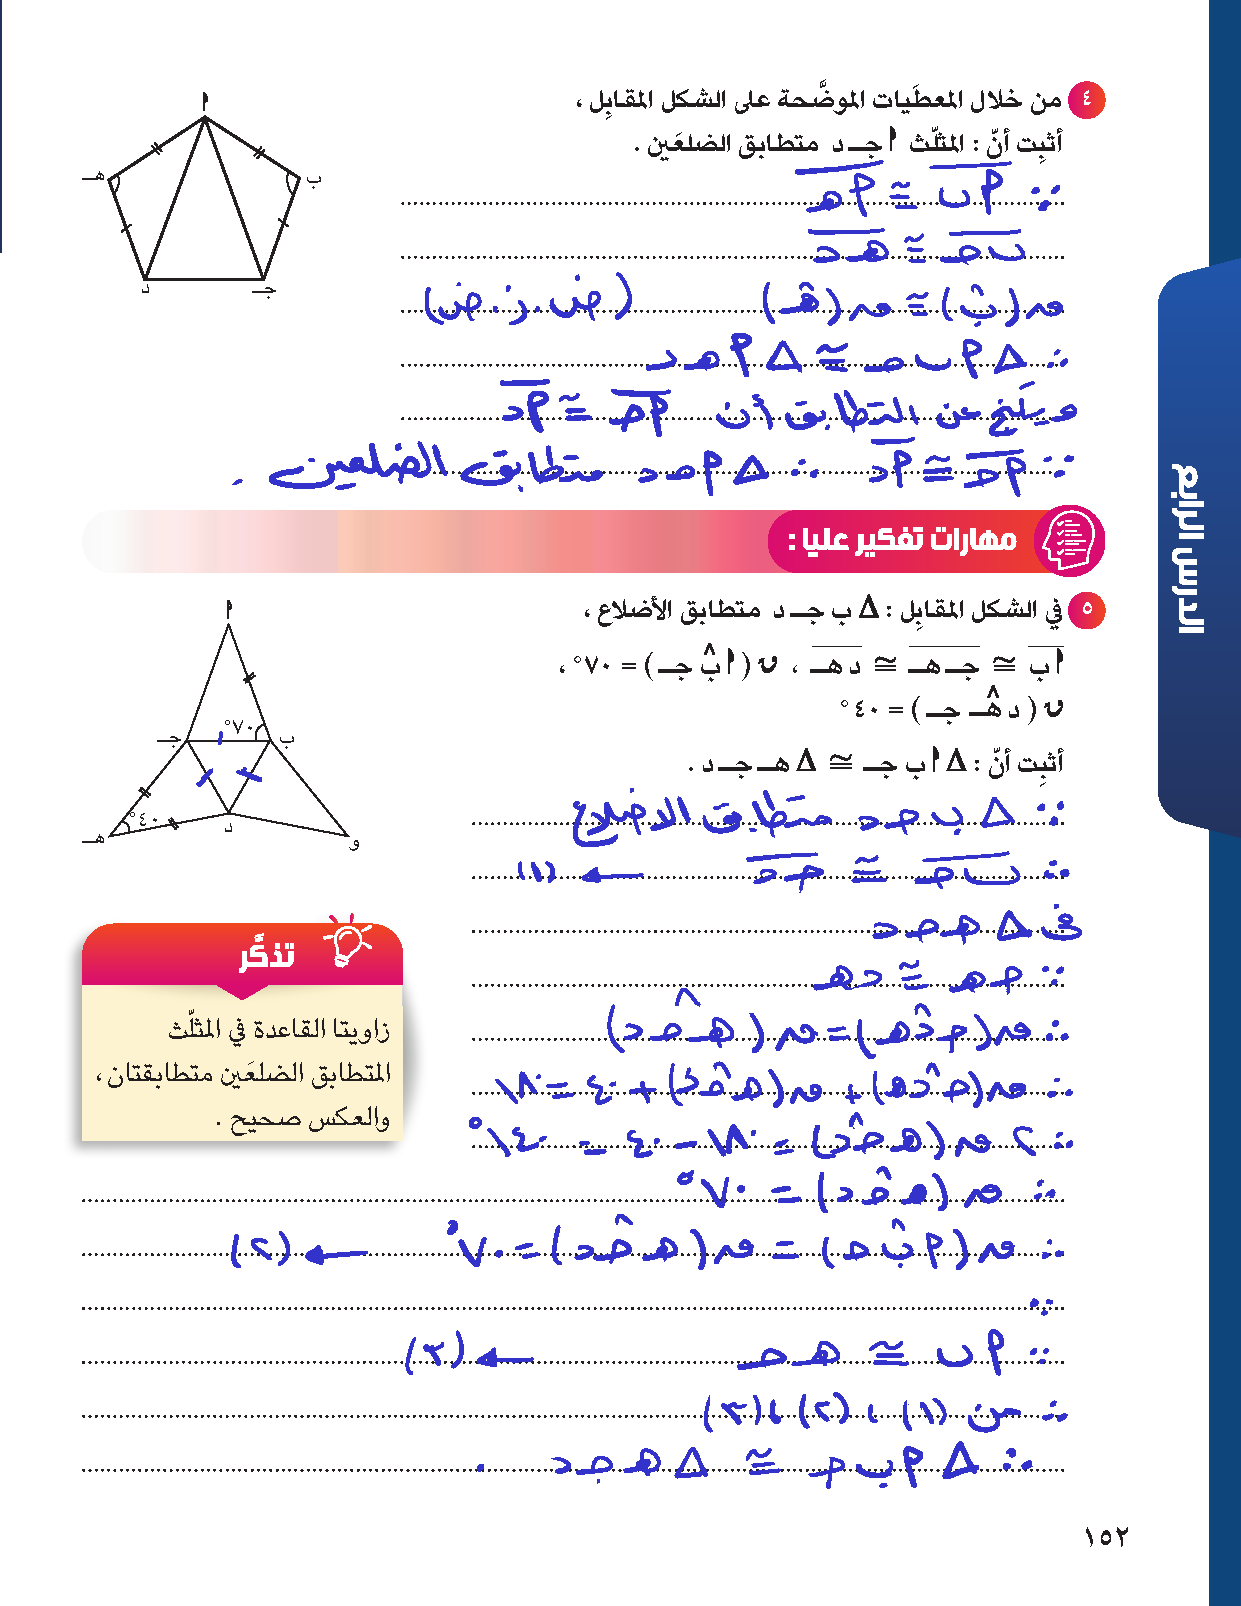 ٤ من خلال المعطَيات الموضَّحة على الشكل المقابِل ،
أثبِت أنّ : المثلّث أ جـ د متطابق الضلعَين .
أ
ب
هـ
جـ
د
∵ أب ≅ أهـ
ب حـ ≅ هـ د
ق(ب̂) ≅ ق(هـ̂) (ض.ز.ض)
∴ Δ أ ب حـ ≅ Δ أ هـ د
وينتج عن التطابق أن أحـ ≅ أد
∵ أحـ ≅ أد ∴ Δ أ حـ د متطابق الضلعين .
مهارات تفكير عليا :
٥ في الشكل المقابِل : Δ ب جـ د متطابق الأضلاع ،
أب ≅ جـ هـ ≅ د هـ ، ق ( أ ب̂ جـ ) = ٧٠° ،
ق ( د هـ̂ جـ ) = ٤٠°
أثبِت أنّ : Δ أ ب جـ ≅ Δ هـ جـ د .
أ
٧٠°
جـ
ب
٤٠°
د
هـ
و
∵ Δ ب حـ د متطابق الاضلاع
∴ ب حـ ≅ حـ د ← (١)
فى Δ هـ حـ د
∵ حـ هـ ≅ د هـ
∴ ق(حـ د̂ هـ) = ق(هـ حـ̂ د)
∴ ق(حـ د̂ هـ) + ق(هـ حـ̂ د) + ٤٠ = ١٨٠
∴ ٢ ق(هـ حـ̂ د) = ١٨٠ − ٤٠ = ١٤٠°
∴ ق(هـ حـ̂ د) = ٧٠°
∴ ق(أ ب̂ حـ) = ق(هـ حـ̂ د) = ٧٠° ← (٢)
∵
∵ أ ب ≅ هـ حـ ← (٣)
∴ من (١) ، (٢) ، (٣)
∴ Δ أ ب حـ ≅ Δ هـ حـ د .
تذكَّر
زاويتا القاعدة في المثلّث
المتطابق الضلعَين متطابقتان ،
والعكس صحيح .
الدرس الرابع
١٥٢